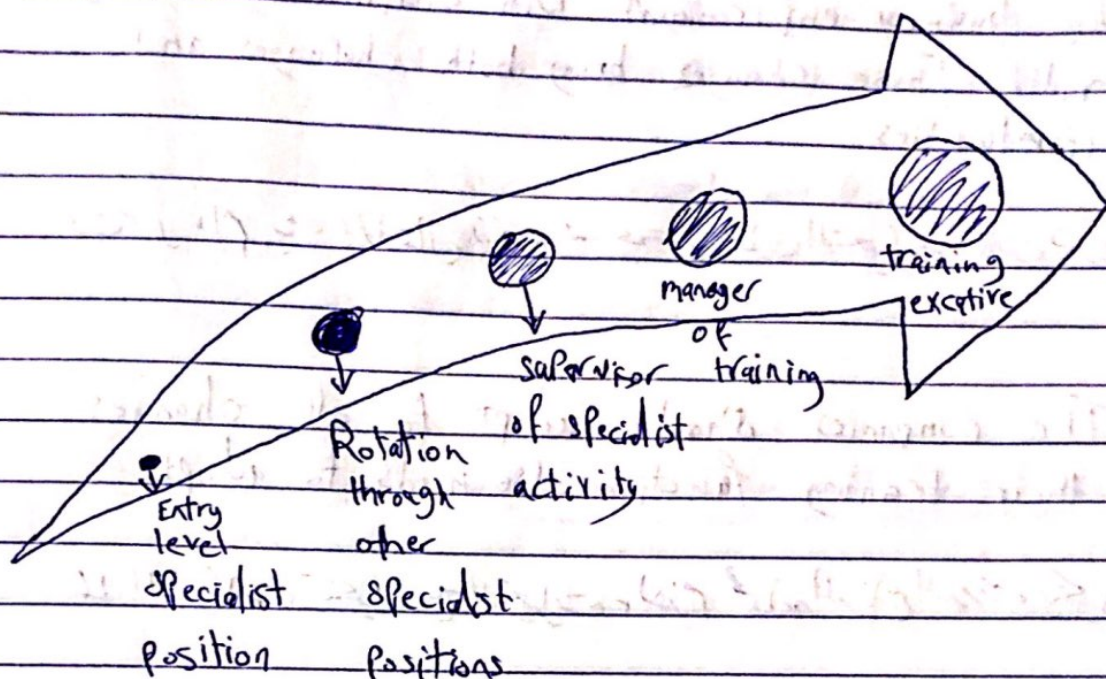 Entry
level
specialist
position
Rotation
through
other
specialist
positions
supervisor
of specialist
activity
manager
of
training
training
exceptive